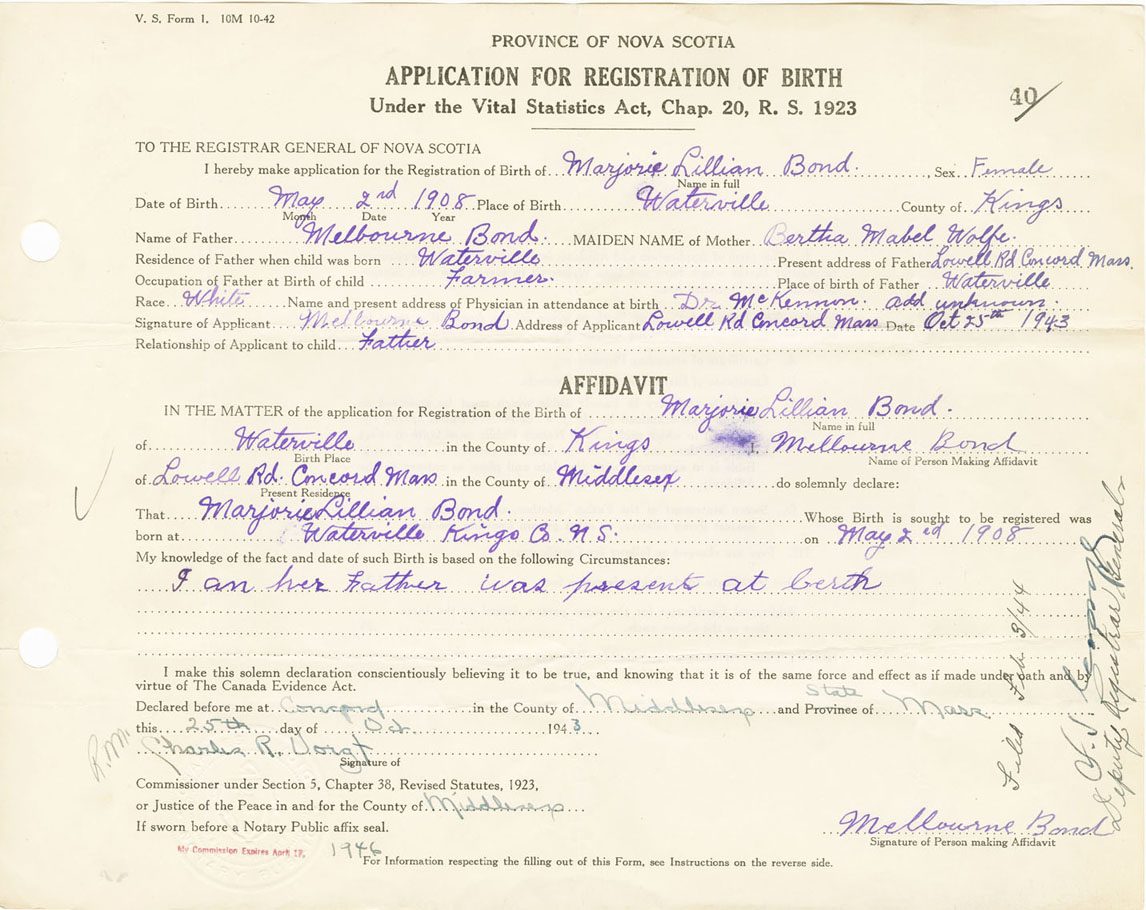 V. S. Form 1. 10M 10-42
PROVINCE OF NOVA SCOTIA
APPLICATION FOR REGISTRATION OF BIRTH
Under the Vital Statistics Act, Chap. 20, R. S. 1923
40
TO THE REGISTRAR GENERAL OF NOVA SCOTIA
I hereby make application for the Registration of Birth of Marjorie Lillian Bond. , Sex Female
Name in full
Date of Birth May 2nd 1908 Place of Birth Waterville County of Kings
Month Date Year
Name of Father Melbourne Bond. MAIDEN NAME of Mother Bertha Mabel Wolfe.
Residence of Father when child was born Waterville Present address of Father Lowell Rd Concord Mass.
Occupation of Father at Birth of child Farmer. Place of birth of Father Waterville
Race White Name and present address of Physician in attendance at birth Dr McKennon. add unknown.
Signature of Applicant Melbourne Bond Address of Applicant Lowell Rd Concord Mass Date Oct 25th 1943
Relationship of Applicant to child Father
AFFIDAVIT
IN THE MATTER of the application for Registration of the Birth of Marjorie Lillian Bond.
Name in full
of Waterville in the County of Kings I, Melbourne Bond
Birth Place Name of Person Making Affidavit
of Lowell Rd. Concord Mass in the County of Middlesex do solemnly declare:
Present Residence
That Marjorie Lillian Bond. Whose Birth is sought to be registered was
born at Waterville Kings Co. N.S. on May 2ed 1908
My knowledge of the fact and date of such Birth is based on the following Circumstances:
I an her Father was present at berth
I make this solemn declaration conscientiously believing it to be true, and knowing that it is of the same force and effect as if made under oath and by
virtue of The Canada Evidence Act.
State
Declared before me at Concord in the County of Middlesex and Province of Mass
this 25th day of Oct 1943
Charles R. Voigt
Signature of
Commissioner under Section 5, Chapter 38, Revised Statutes, 1923,
or Justice of the Peace in and for the County of Middlesex
If sworn before a Notary Public affix seal.
My Commission Expires April 17, 1946
Melbourne Bond
Signature of Person making Affidavit
For Information respecting the filling out of this Form, see Instructions on the reverse side.
Filed Feb 3/44
Deputy Registrar General